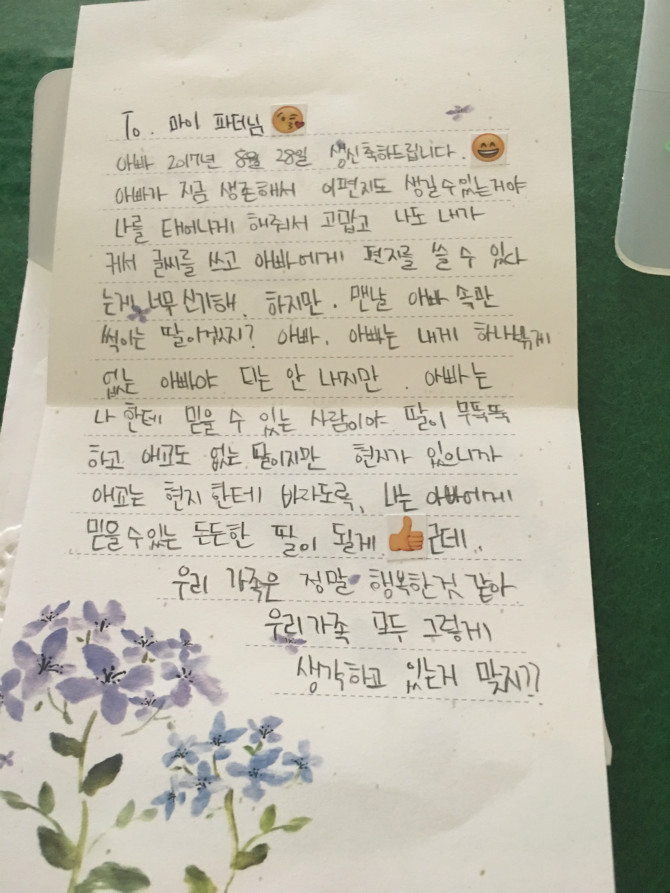 To. 마이 파더님
아빠 2017년 8월 28일 생신축하드립니다.
아빠가 지금 생존해서 이편지도 생길수있는거야
나를 태어나게 해줘서 고맙고 나도 내가
커서 글씨를 쓰고 아빠에게 편지를 쓸 수 있다
는게 너무 신기해. 하지만. 맨날 아빠 속만
썩이는 딸이었지? 아빠. 아빠는 내게 하나밖에
없는 아빠야 티는 안 내지만. 아빠는
나 한테 믿을 수 있는 사람이야 딸이 무뚝뚝
하고 애교도 없는 딸이지만 현지가 있으니까
애교는 현지 한테 바라도록, 나는 아빠에게
믿을수있는 든든한 딸이 될게 근데..
우리 가족은 정말 행복한것 같아
우리가족 모두 그렇게
생각하고 있는거 맞지??